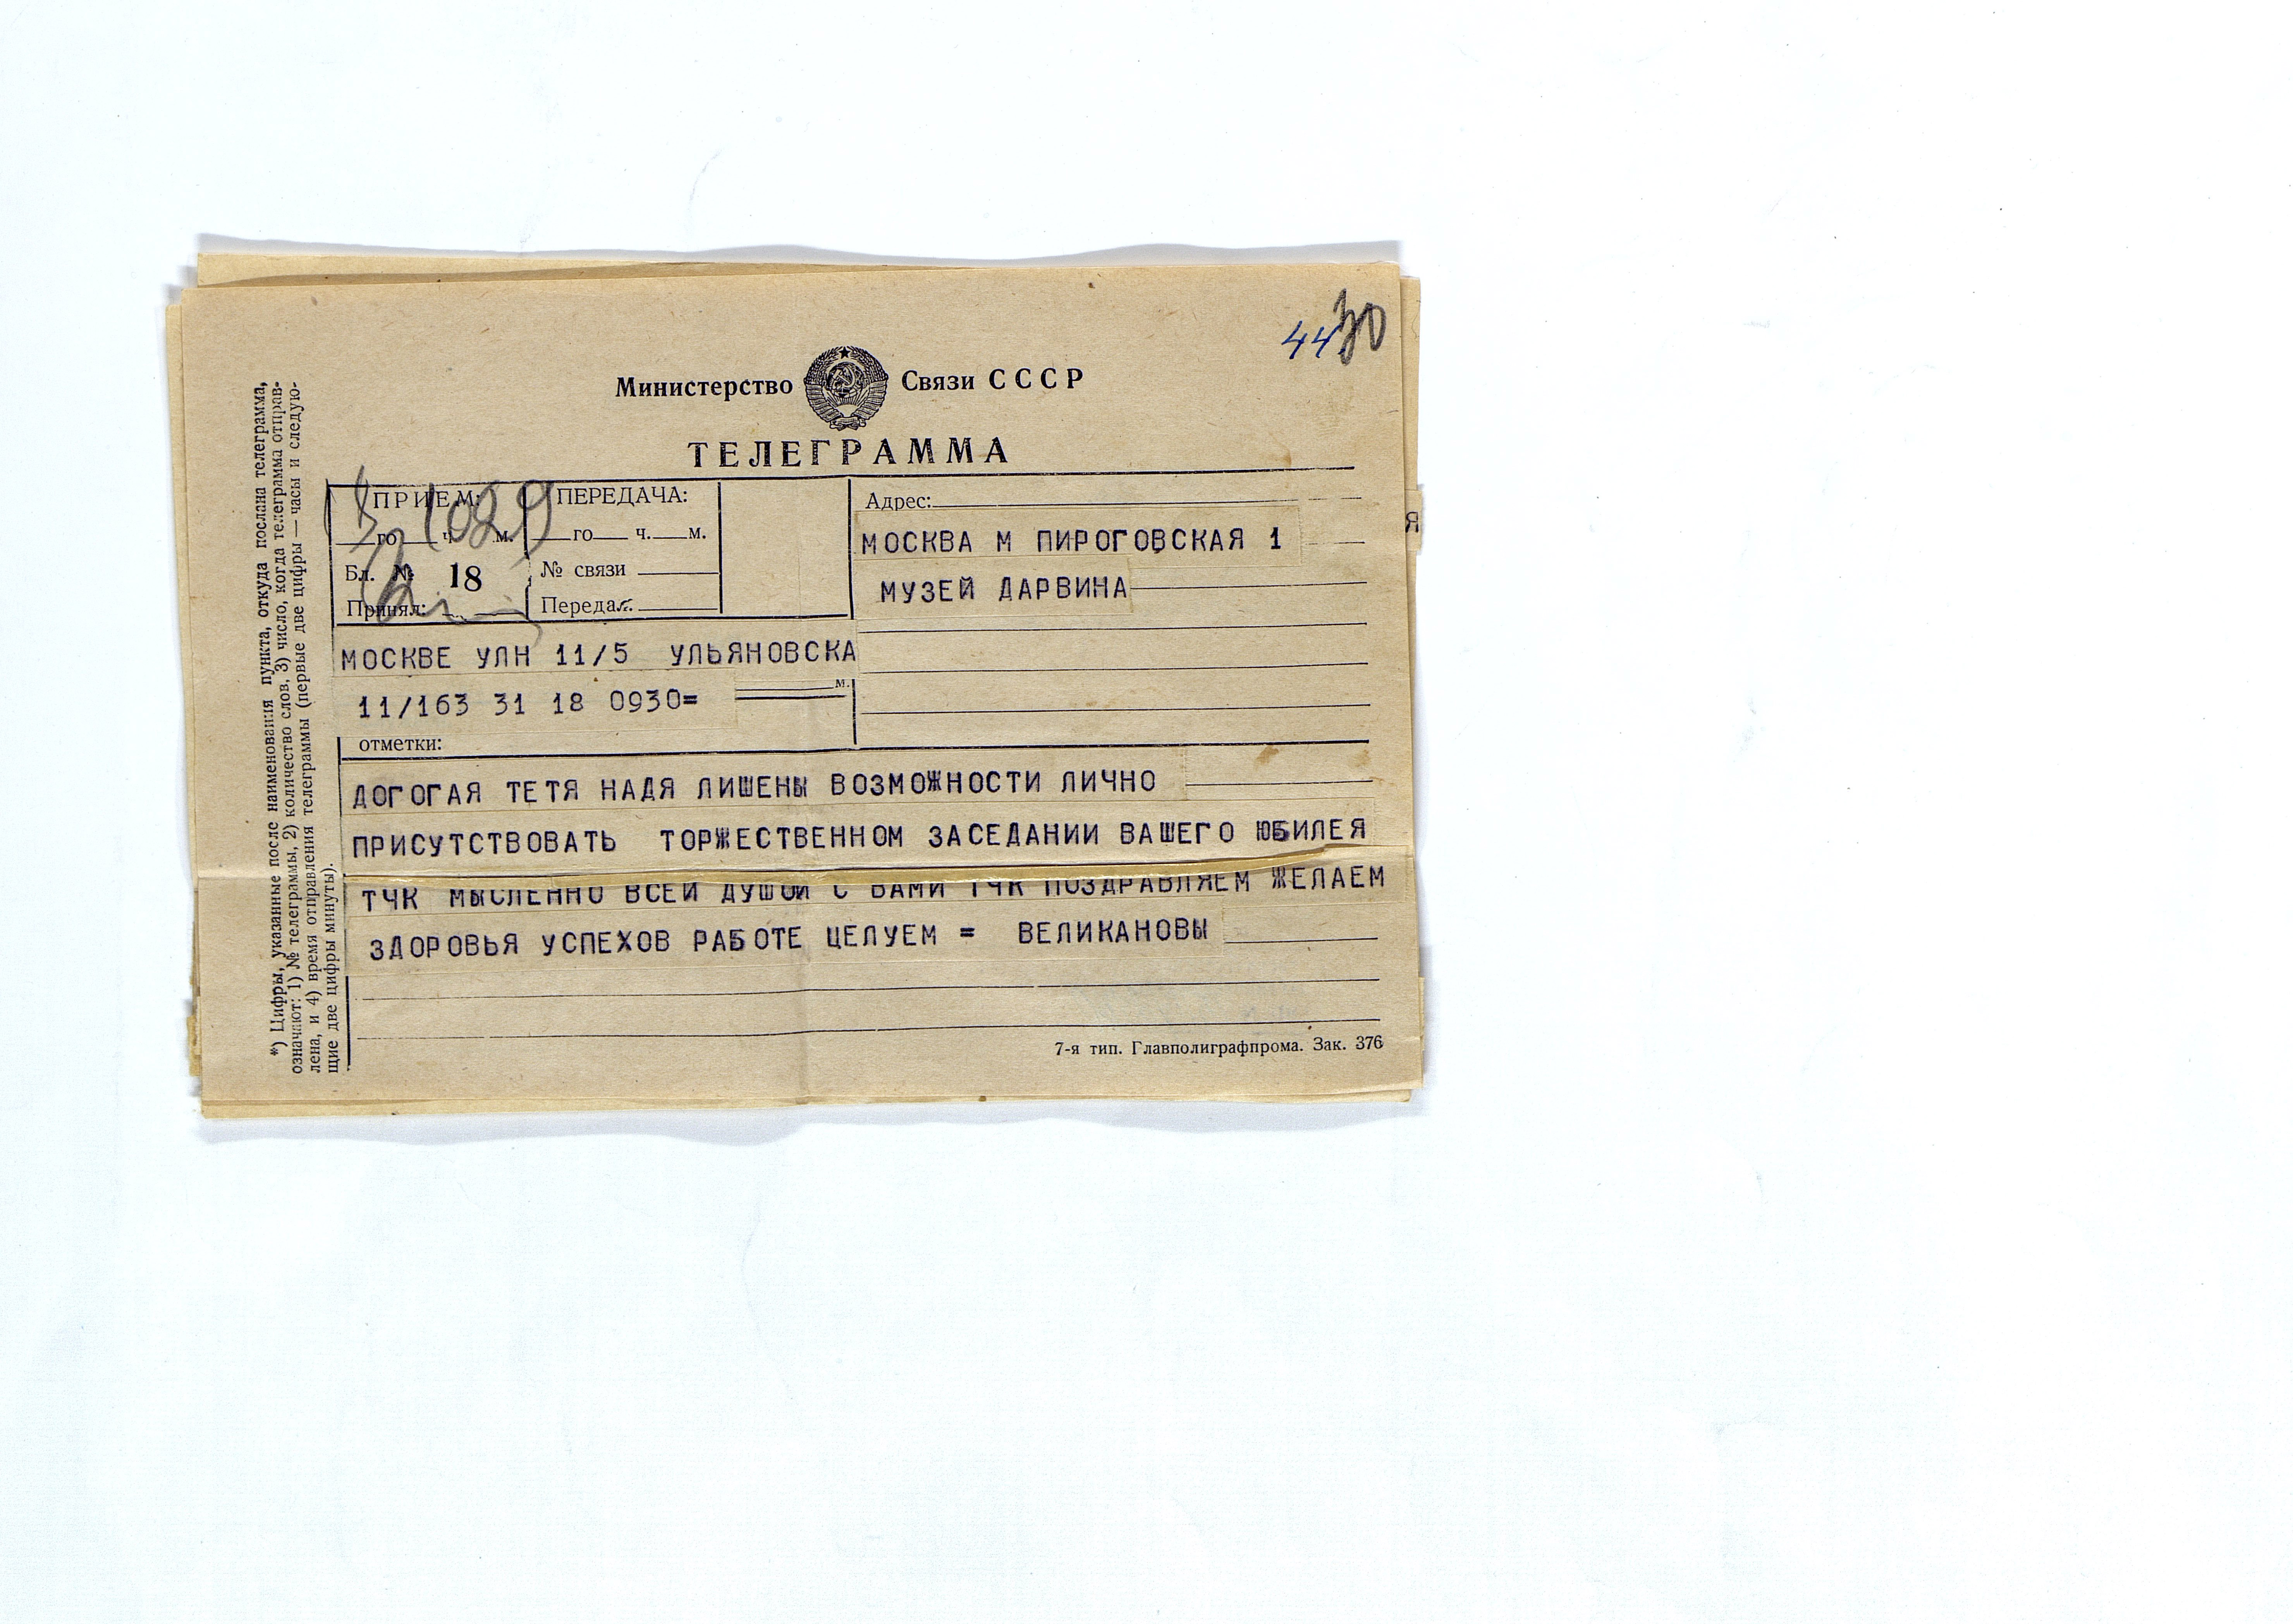 44 30
Министерство Связи СССР
ТЕЛЕГРАММА
ПРИЕМ:
го ч. м.
Бл. № 18
Принял:
1029
ПЕРЕДАЧА:
го ч. м.
№ связи
Передал:
Адрес:
МОСКВА М ПИРОГОВСКАЯ 1
МУЗЕЙ ДАРВИНА
МОСКВЕ УЛН 11/5 УЛЬЯНОВСКА
11/163 31 18 0930=
м.
отметки:
ДОГОГАЯ ТЕТЯ НАДЯ ЛИШЕНЫ ВОЗМОЖНОСТИ ЛИЧНО
ПРИСУТСТВОВАТЬ ТОРЖЕСТВЕННОМ ЗАСЕДАНИИ ВАШЕГО ЮБИЛЕЯ
ТЧК МЫСЛЕННО ВСЕЙ ДУШОЙ С ВАМИ ТЧК ПОЗДРАВЛЯЕМ ЖЕЛАЕМ
ЗДОРОВЬЯ УСПЕХОВ РАБОТЕ ЦЕЛУЕМ = ВЕЛИКАНОВЫ
7-я тип. Главполиграфпрома. Зак. 376
*) Цифры, указанные после наименования пункта, откуда послана телеграмма,
означают: 1) № телеграммы, 2) количество слов, 3) число, когда телеграмма отправ-
лена, и 4) время отправления телеграммы (первые две цифры — часы и следую-
щие две цифры минуты).
Я